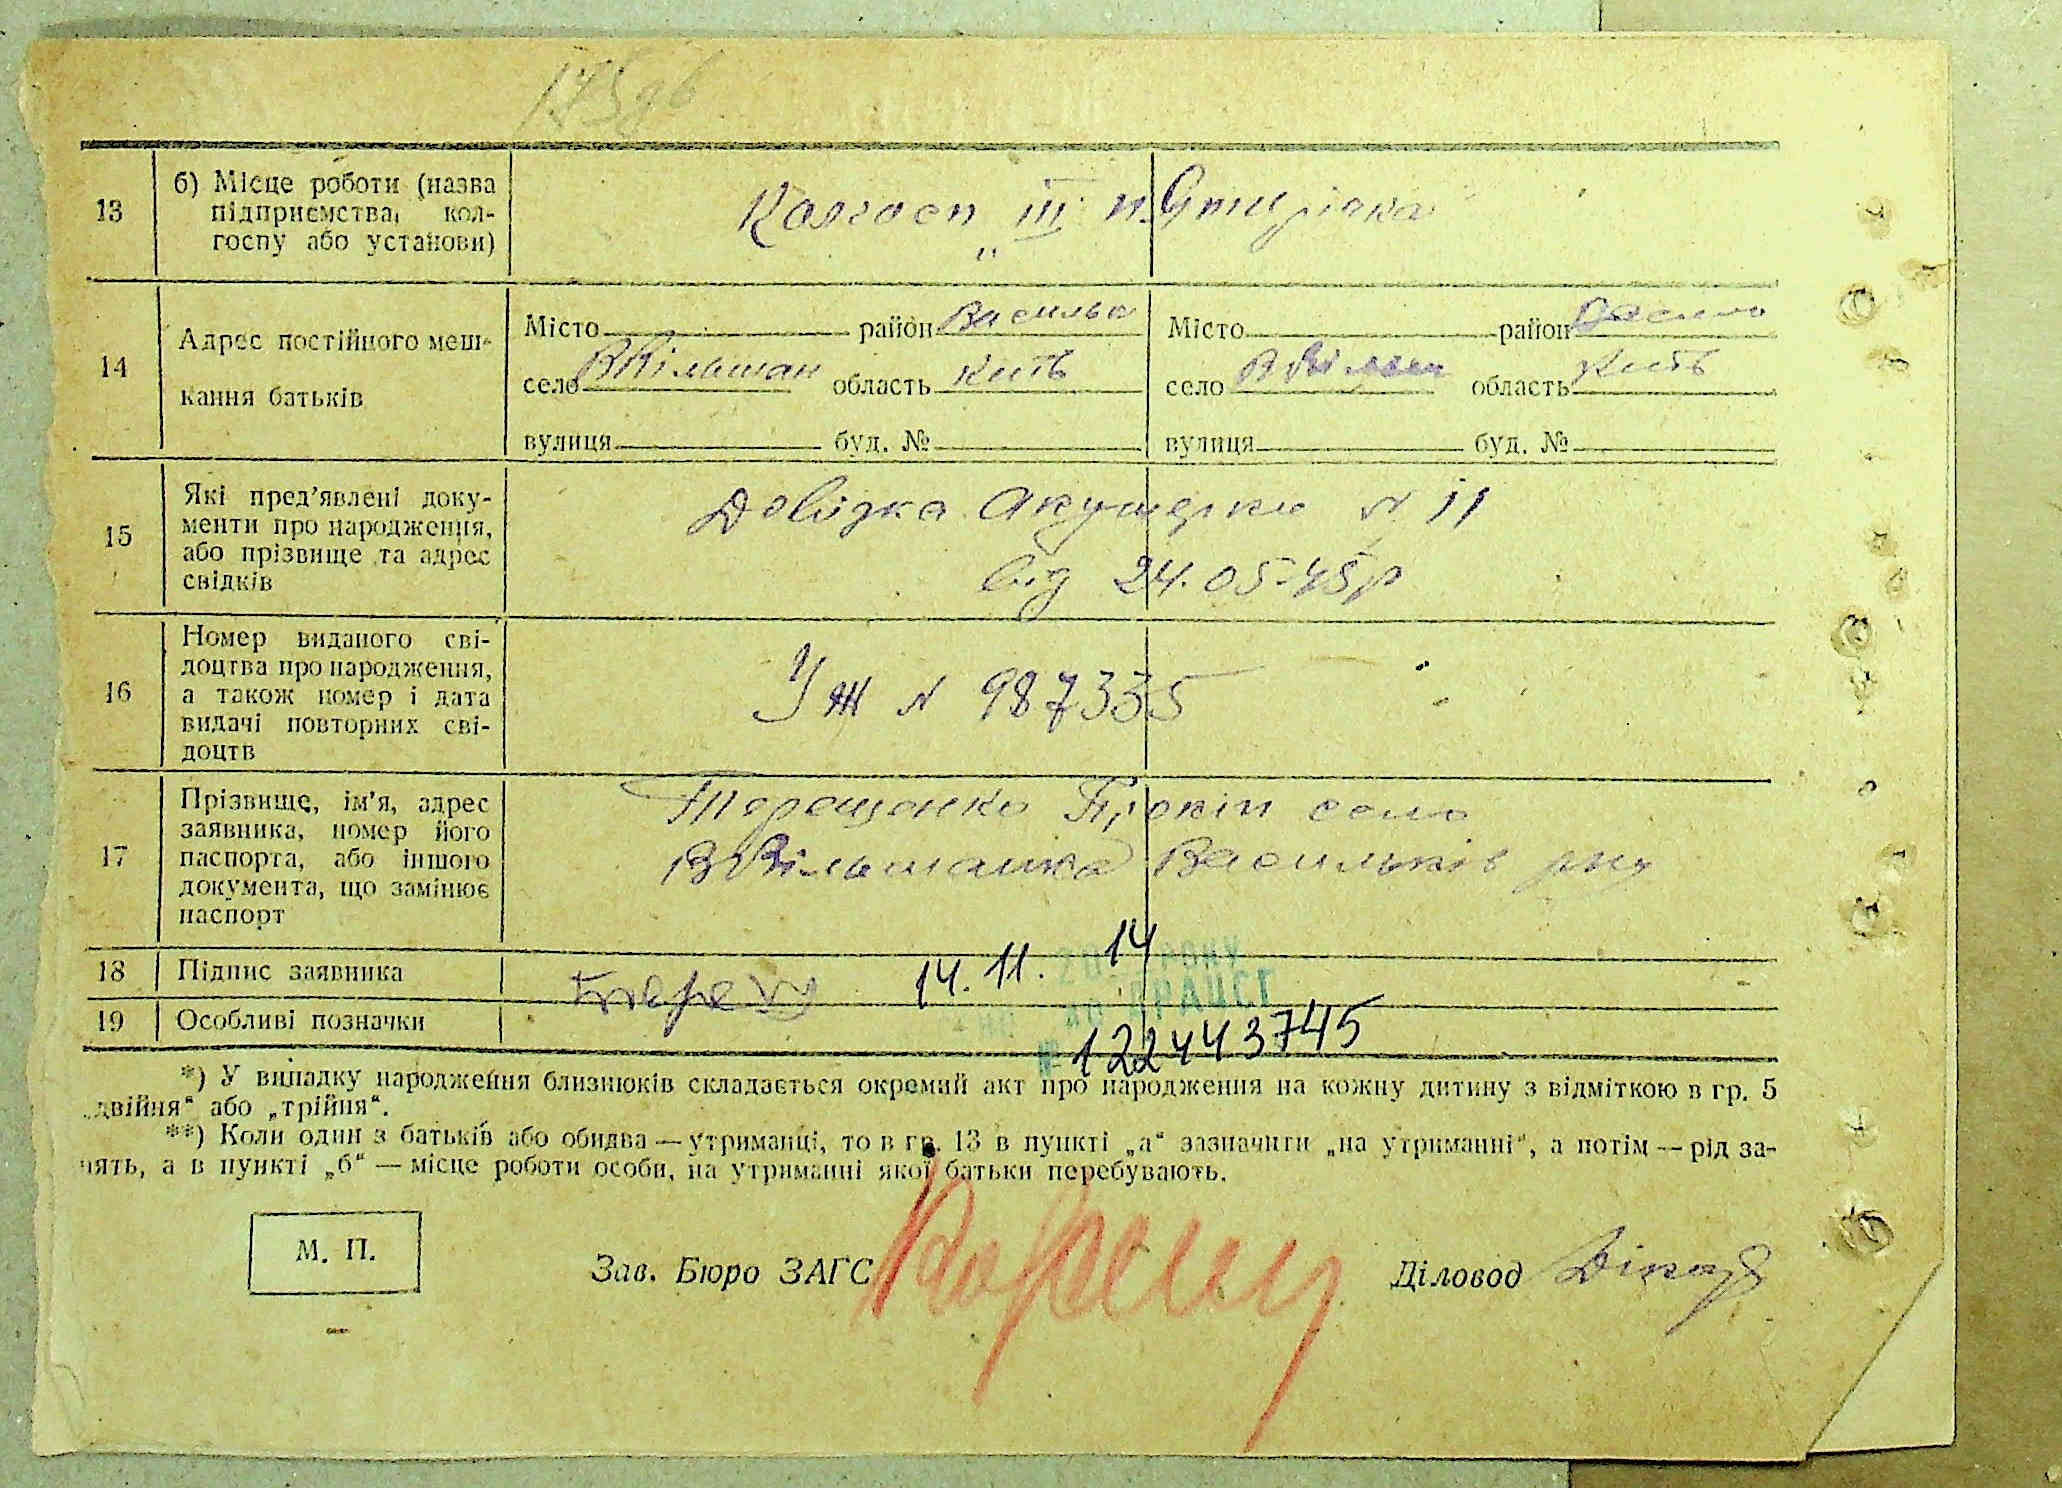 13
б) Місце роботи (назва
підприємства, кол-
госпу або установи)
Колгосп „III п.
14
Адрес постійного меш-
кання батьків
Місто район Васильк
село ВВільшан область Київ
вулиця буд. №
Місто район
село область Київ
вулиця буд. №
15
Які пред'явлені доку-
менти про народження,
або прізвище та адрес
свідків
Довідка Акушерки N 11
від 24.05-45р
16
Номер виданого сві-
доцтва про народження,
а також номер і дата
видачі повторних сві-
доцтв
УЖ N 987335
17
Прізвище, ім'я, адрес
заявника, номер його
паспорта, або іншого
документа, що замінює
паспорт
Терещенко Прокіп село
ВВільшанка Васильків рну
18
Підпис заявника
14. 11. 14
20 РОКУ
ДРАЦСГ
19
Особливі позначки
№ 122443745
*) У випадку народження близнюків складається окремий акт про народження на кожну дитину з відміткою в гр. 5
„двійня“ або „трійня“.
**) Коли один з батьків або обидва — утриманці, то в гр. 13 в пункті „а“ зазначити „на утриманні“, а потім — рід за-
нять, а в пункті „б“ — місце роботи особи, на утриманні якої батьки перебувають.
М. П.
Зав. Бюро ЗАГС
Діловод